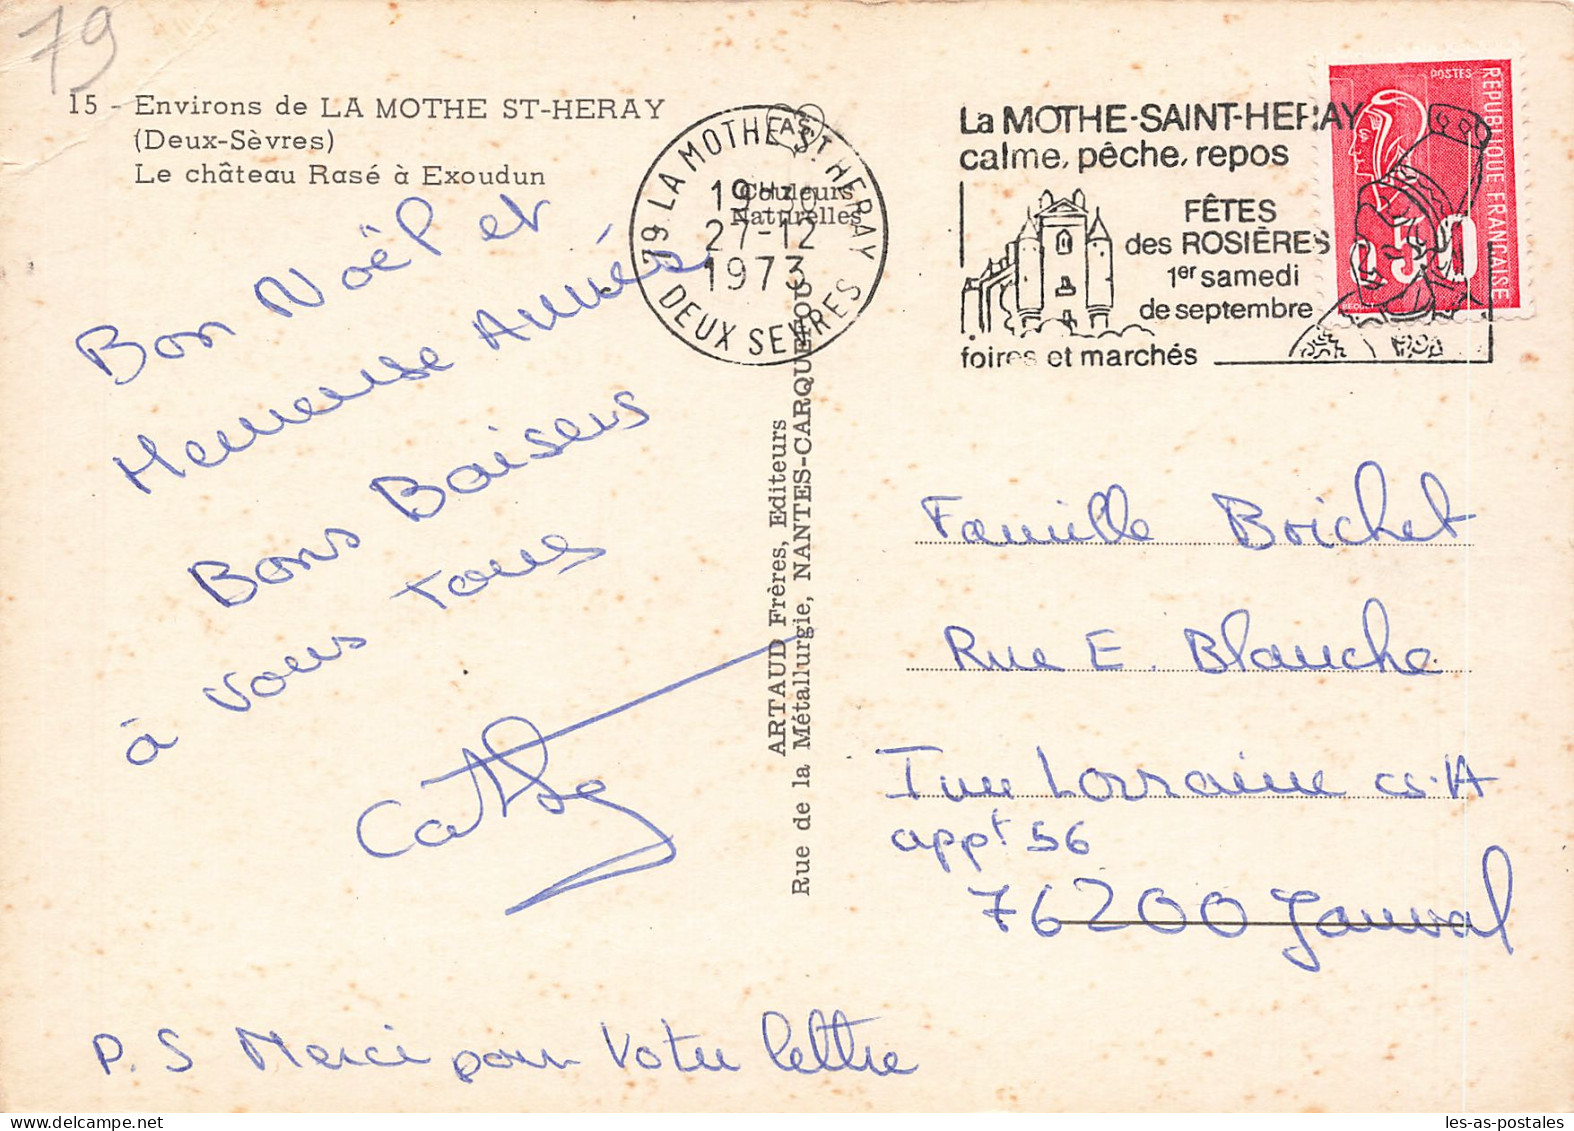 79
15 - Environs de LA MOTHE ST-HERAY
(Deux-Sèvres)
Le château Rasé à Exoudun
Bon Noël et
Heureuse Année
Bons Baisers
à vous tous
Cathy
P.S Merci pour Votre lettre
79 LA MOTHE ST HERAY
19H30
27-12
1973
DEUX SEVRES
AS
Couleurs
Naturelles
ARTAUD Frères, Editeurs
Rue de la Métallurgie, NANTES-CARQUEFOU
La MOTHE-SAINT-HERAY
calme, pêche, repos
FÊTES
des ROSIÈRES
1er samedi
de septembre
foires et marchés
POSTES
REPUBLIQUE FRANÇAISE
0,50
Famille Brichet
Rue E. Blanche
Imm Lorraine cs.A
appt 56
76200 Janval
les-as-postales